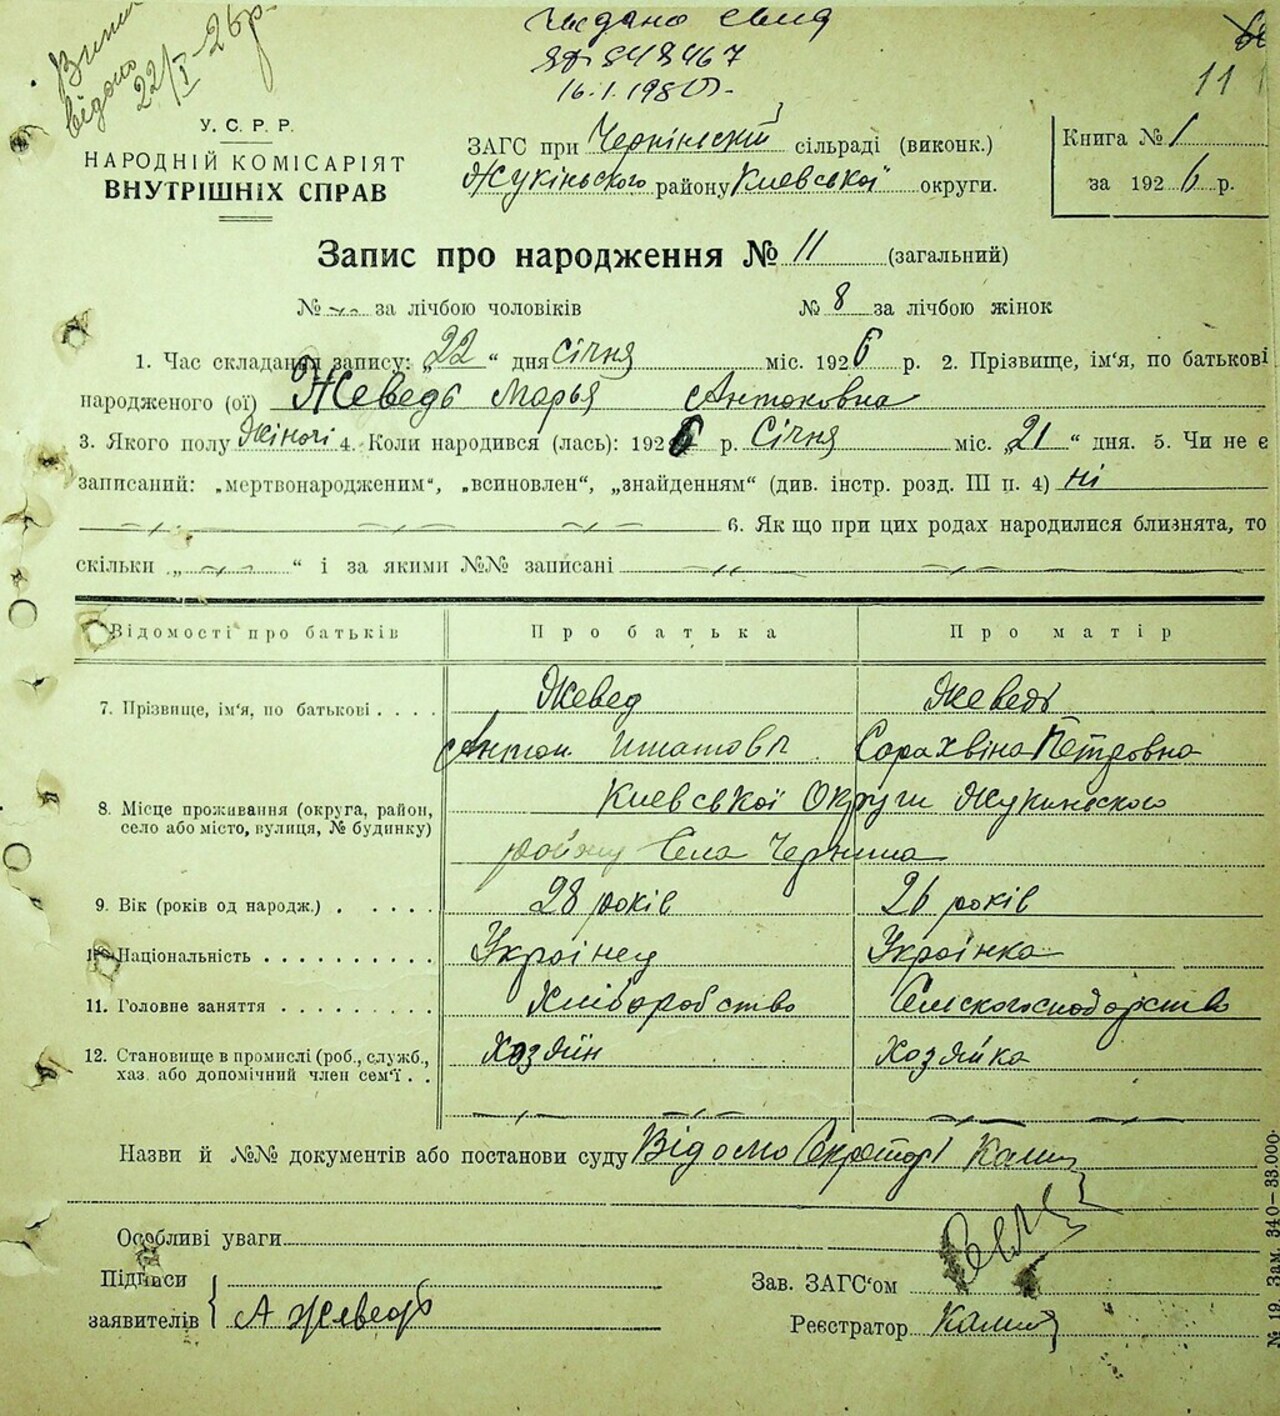 Випис
відано
22/I-26р.
Видано свид
848467
16.1.1980.
11
У. С. Р. Р.
НАРОДНІЙ КОМІСАРІЯТ
ВНУТРІШНІХ СПРАВ
ЗАГС при Чернінскій сільраді (виконк.)
Жукіньского району Киевської округи.
Книга № 1
за 1926 р.
Запис про народження № 11 (загальний)
№ за лічбою чоловіків № 8 за лічбою жінок
1. Час складання запису: „22“ дня Січня міс. 1926 р. 2. Прізвище, ім'я, по батькові
народженого (ої) Жеведь Марья Антоновна
3. Якого полу Жіночі 4. Коли народився (лась): 1926 р. Січня міс. „21“ дня. 5. Чи не є
записаний: „мертвонародженим“, „всиновлен“, „знайденням“ (див. інстр. розд. III п. 4) ні
6. Як що при цих родах народилися близнята, то
скільки „ “ і за якими №№ записані
Відомості про батьків Про батька Про матір
7. Прізвище, ім'я, по батькові . . . . Жевед Жеведь
Антон Сарахвіна Петровна
8. Місце проживання (округа, район, Киевської Округи Жукиньского
село або місто, вулиця, № будинку) району Села Чернина
9. Вік (років од народж.) . . . . . 28 років 26 років
10. Національність . . . . . . . . . . Украінец Украінка
11. Головне заняття . . . . . . . . . Хліборобство
12. Становище в промислі (роб., служб., Хозяїн Хозяйка
хаз. або допомічний член сем'ї . .
Назви й №№ документів або постанови суду Відомо Секретарі
Особливі уваги
Підписи
заявителів А Жеведь
Зав. ЗАГС'ом
Реєстратор
№ 19. Зам. 340–33.000.